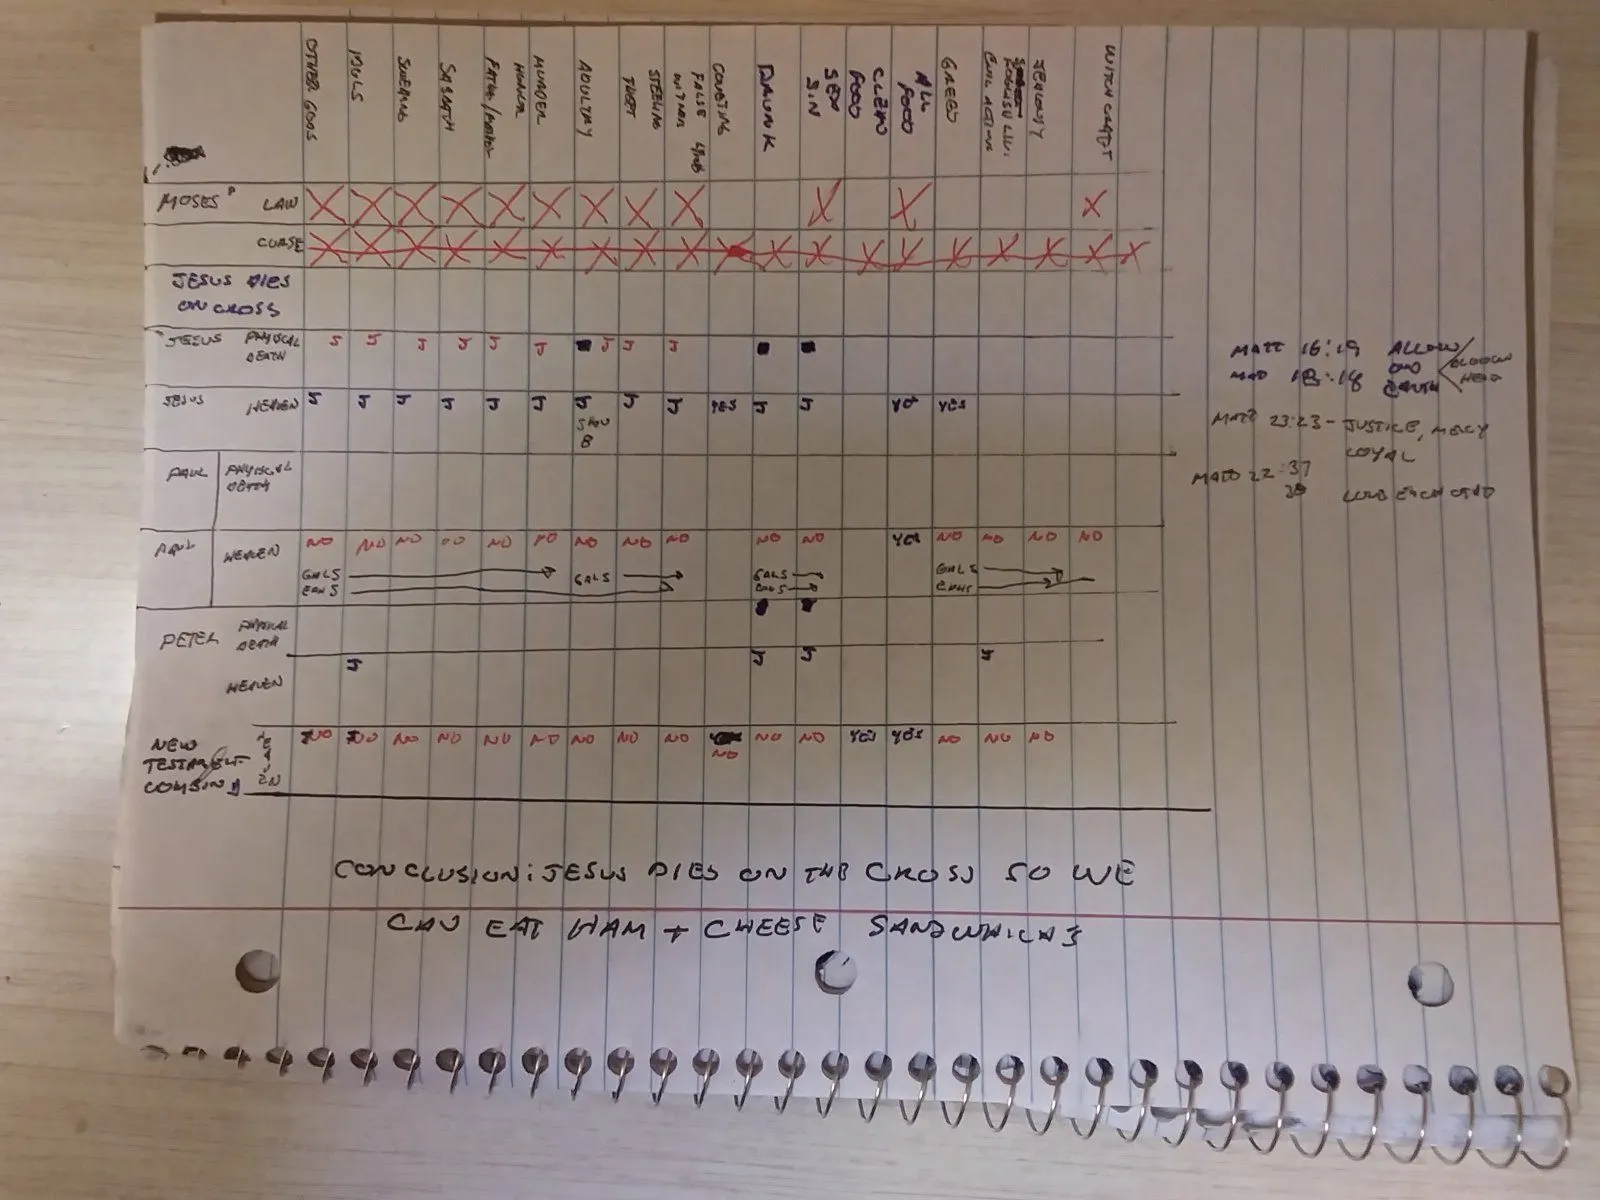 OTHER GODS
IDULS
SWEARING
SABBATH
FATHER/MOTHER HONOR
MURDER
ADULTRY
THEFT STEELING
FALSE WITNES
COVETING
DRUNK
SEX SIN
CLEAN FOOD
ALL FOOD
GREED
EVIL ACTING
JEALOUSY
WITCH CRAFT
MOSES LAW X X X X X X X X X X X X
CURSE X X X X X X X X X X X X X X X X X X X
JESUS DIES
ON CROSS
JESUS PHYISCAL DEATH J J J J J J J J J
JESUS HEAVEN J J J J J J J J J YES J J YES YES
PAUL PHYISCAL DEATH
PAUL HEAVEN NO NO NO NO NO NO NO NO NO NO NO YES NO NO NO NO
GALS GALS GALS GALS
PETER PHYSICAL DEATH
HEAVEN J J J J
NEW TESTAMENT NO NO NO NO NO NO NO NO NO NO NO NO YES YES NO NO NO
MATT 16:19 ALLOW
18:18 ON EARTH
MATT 23:23 - JUSTICE, MERCY
LOYAL
MATT 22:37
CONCLUSION: JESUS DIES ON THE CROSS SO WE
CAN EAT HAM + CHEESE SANDWHICHS